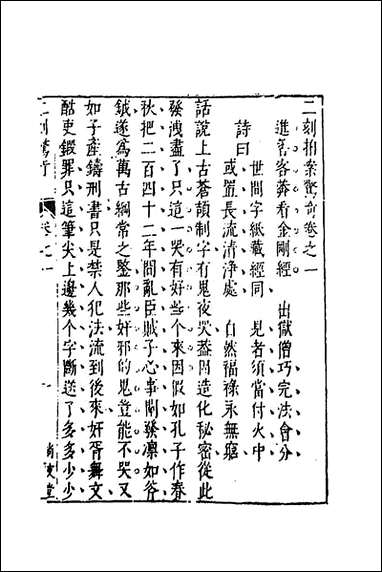 二刻拍案驚奇卷之一
進香客莽看金剛經　出獄僧巧完法會分
世間字紙藏經同　見者須當付火中
詩曰
或置長流清淨處　自然福祿永無窮
話說上古蒼頡制字有鬼夜哭蓋因造化秘密從此
發洩盡了只這一哭有好些个來因假如孔子作春
秋把二百四十二年間亂臣賊子心事闡發凛如斧
鉞遂為萬古綱常之鑒那些奸邪的鬼豈能不哭又
如子產鑄刑書只是禁人犯法流到後來奸胥舞文
酷吏鍛罪只這筆尖上邊幾个字斷送了多多少少
二刻驚奇
卷之一
一
尚友堂